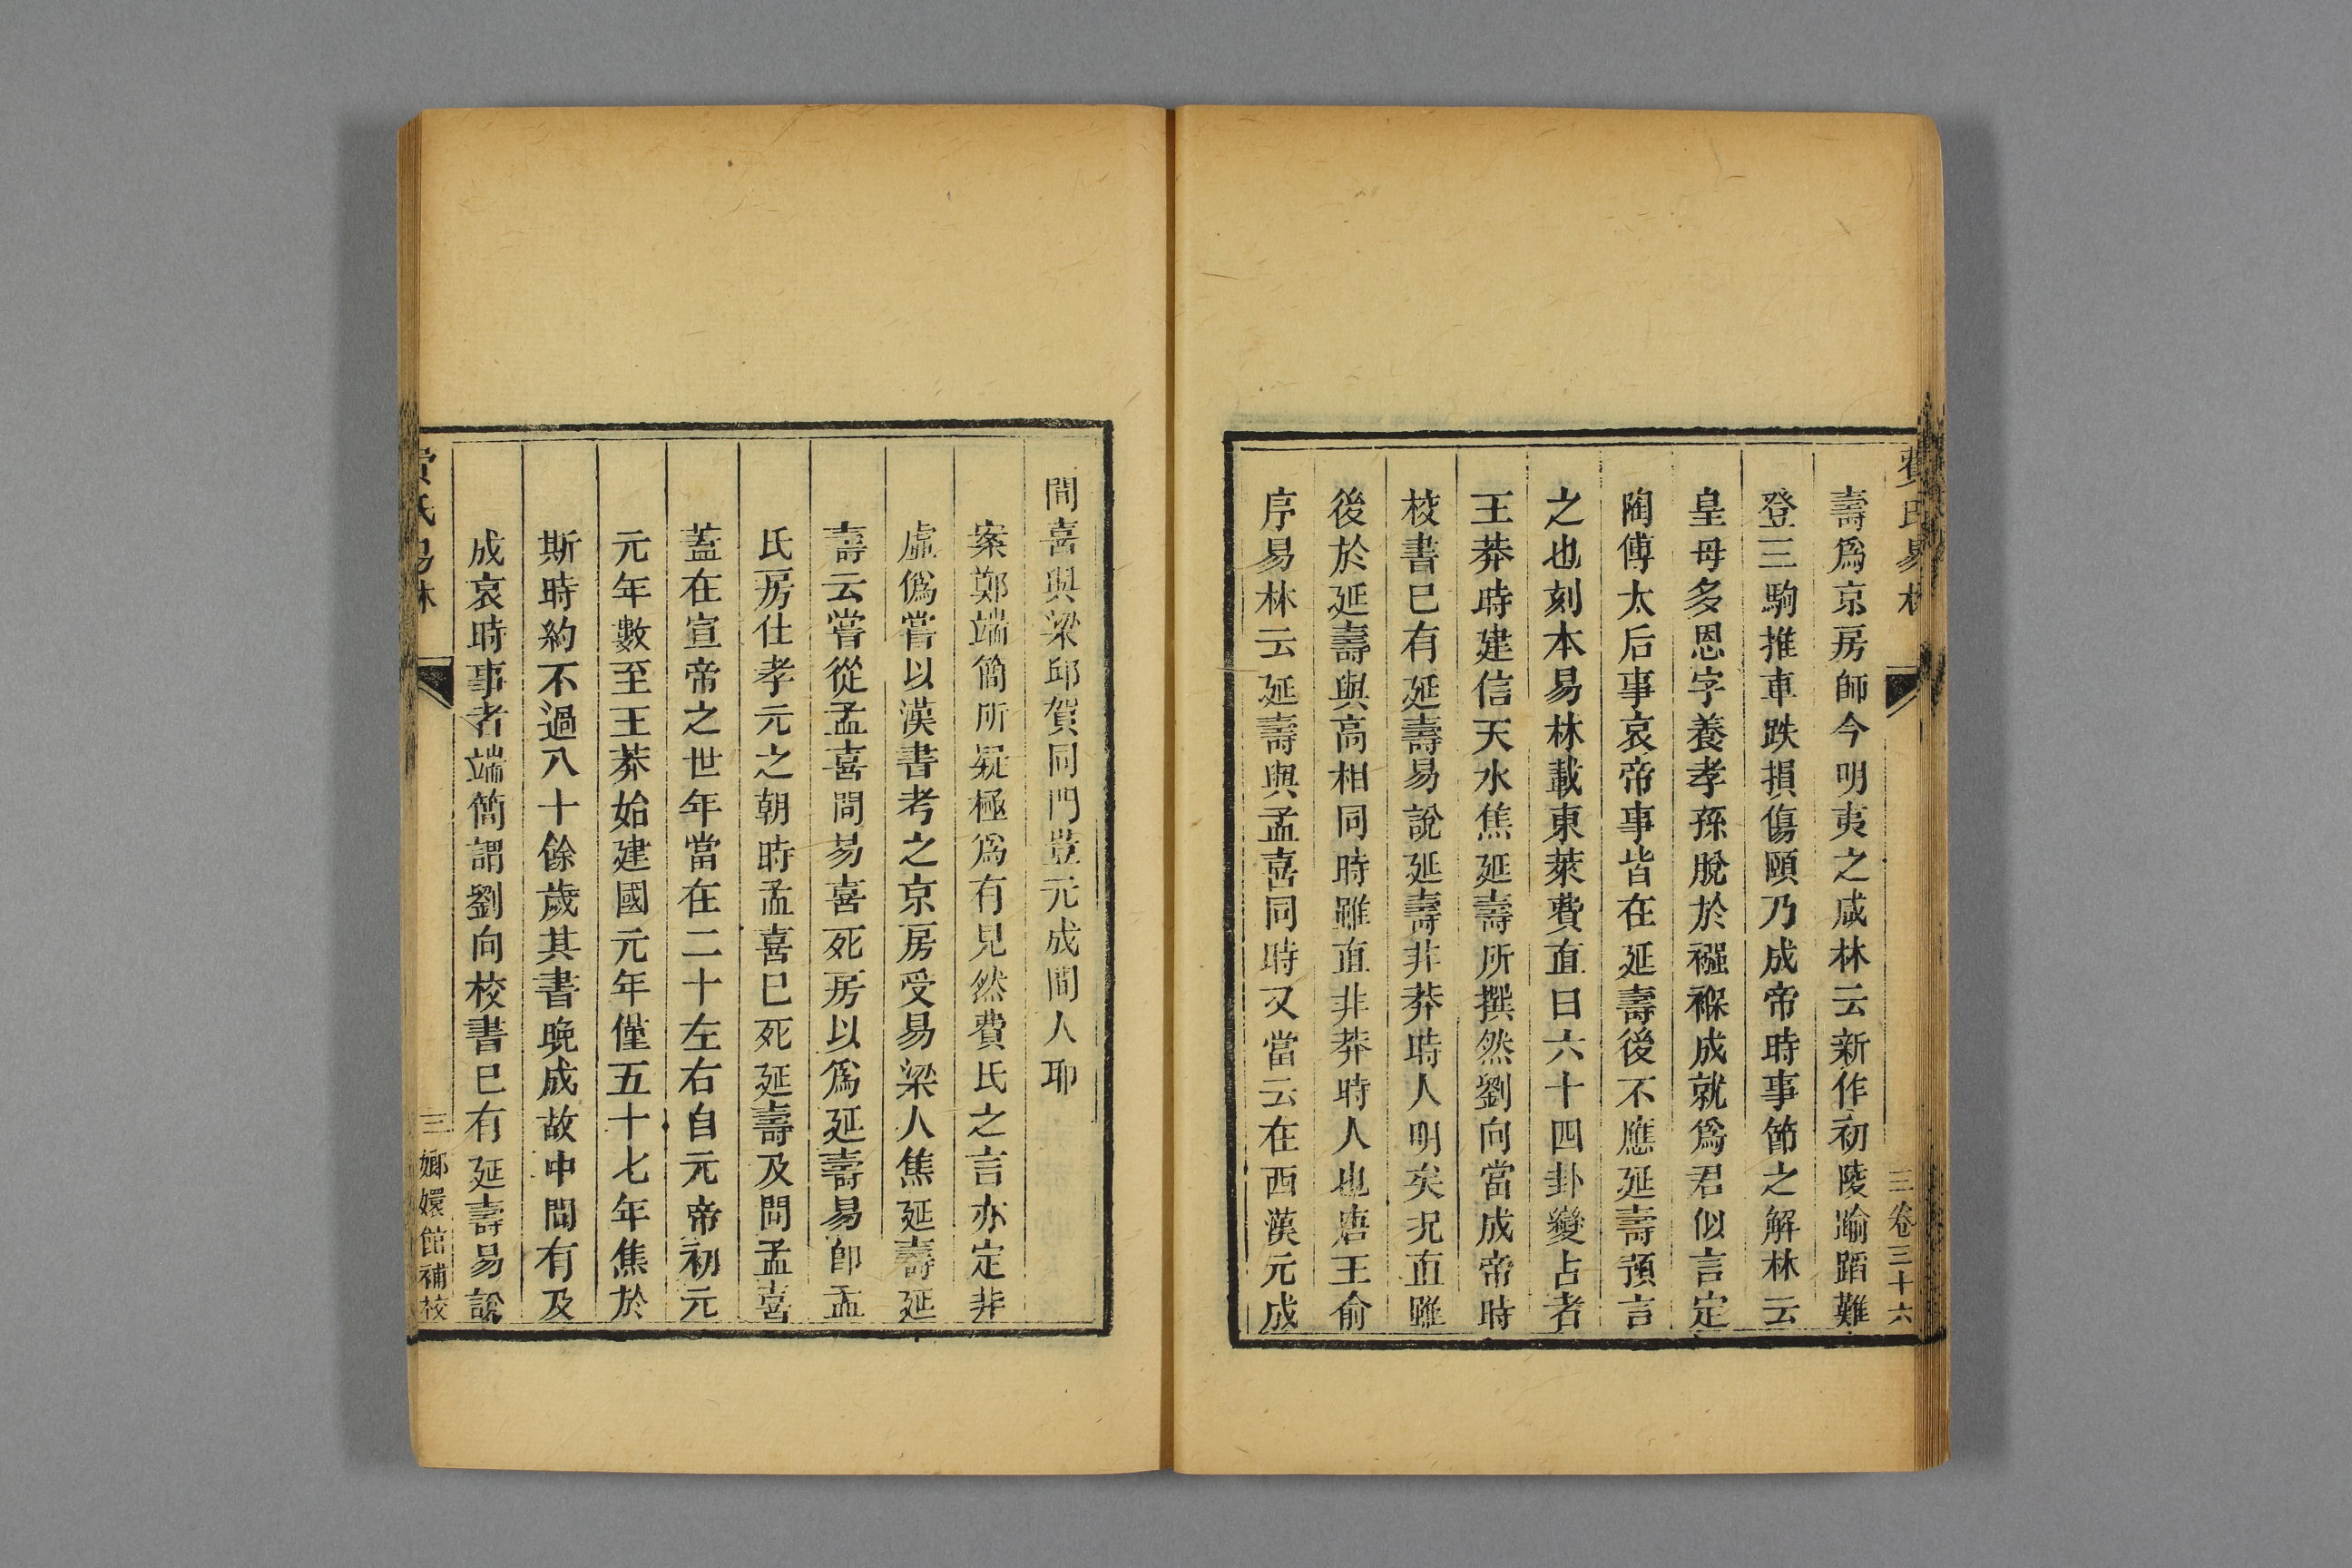 費氏易林
二 卷三十六
壽爲京房師今明夷之咸林云新作初陵踰蹈難
登三駒推車跌損傷頤乃成帝時事節之解林云
皇母多恩字養孝孫脫於襁褓成就爲君似言定
陶傅太后事哀帝事皆在延壽後不應延壽預言
之也刻本易林載東萊費直曰六十四卦變占者
王莽時建信天水焦延壽所撰然劉向當成帝時
校書已有延壽易說延壽非莽時人明矣況直雖
後於延壽與高相同時雖直非莽時人也唐王俞
序易林云延壽與孟喜同時又當云在西漢元成
間喜與梁邱賀同門豈元成間人耶
案鄭端簡所疑極爲有見然費氏之言亦定非
虛僞嘗以漢書考之京房受易梁人焦延壽延
壽云嘗從孟喜問易喜死房以爲延壽易卽孟
氏房仕孝元之朝時孟喜已死延壽及問孟喜
蓋在宣帝之世年當在二十左右自元帝初元
元年數至王莽始建國元年僅五十七年焦於
斯時約不過八十餘歲其書晚成故中間有及
成哀時事者端簡謂劉向校書已有延壽易說
費氏易林
三 嫏嬛館補校